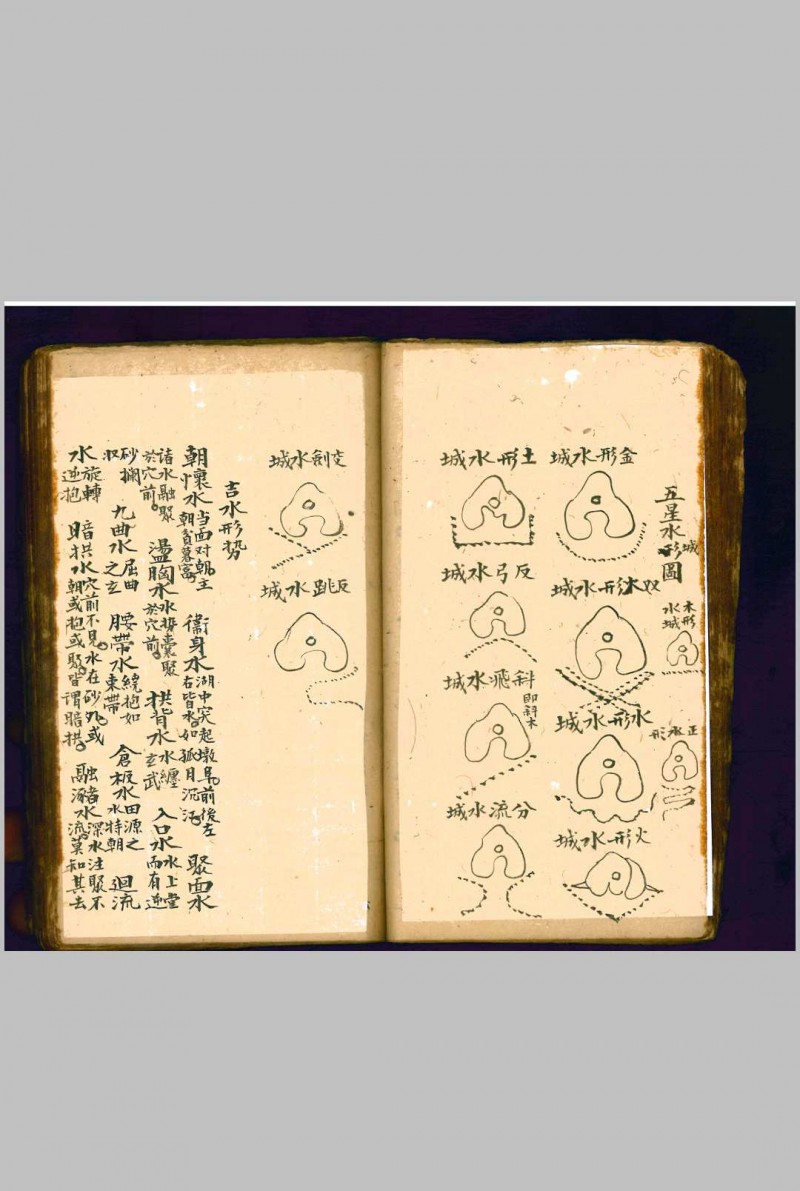 五星水城形圖
木形水城
正水形
金形水城
水形水城
火形水城
土形水城
反弓水城
斜飛水城
即斜木
分流水城
交劍水城
反跳水城
吉水形势
朝懷水 当面对朝主朝貧暮富 衞身水 湖中突起墩阜前後左右皆水如孤月沉江 聚面水
諸水融聚於穴前 盪胸水 水势囊聚於穴前 拱背水 水纏玄武 入口水 水上堂而有逆
砂攔收 九曲水 屈曲之玄 腰帶水 繞抱如束帶 倉板水 田源之水特朝 迴流
水 旋轉逆抱 暗拱水 穴前不見水在砂外或朝或抱或聚皆謂暗拱 融瀦水 深水注聚不流莫知其去